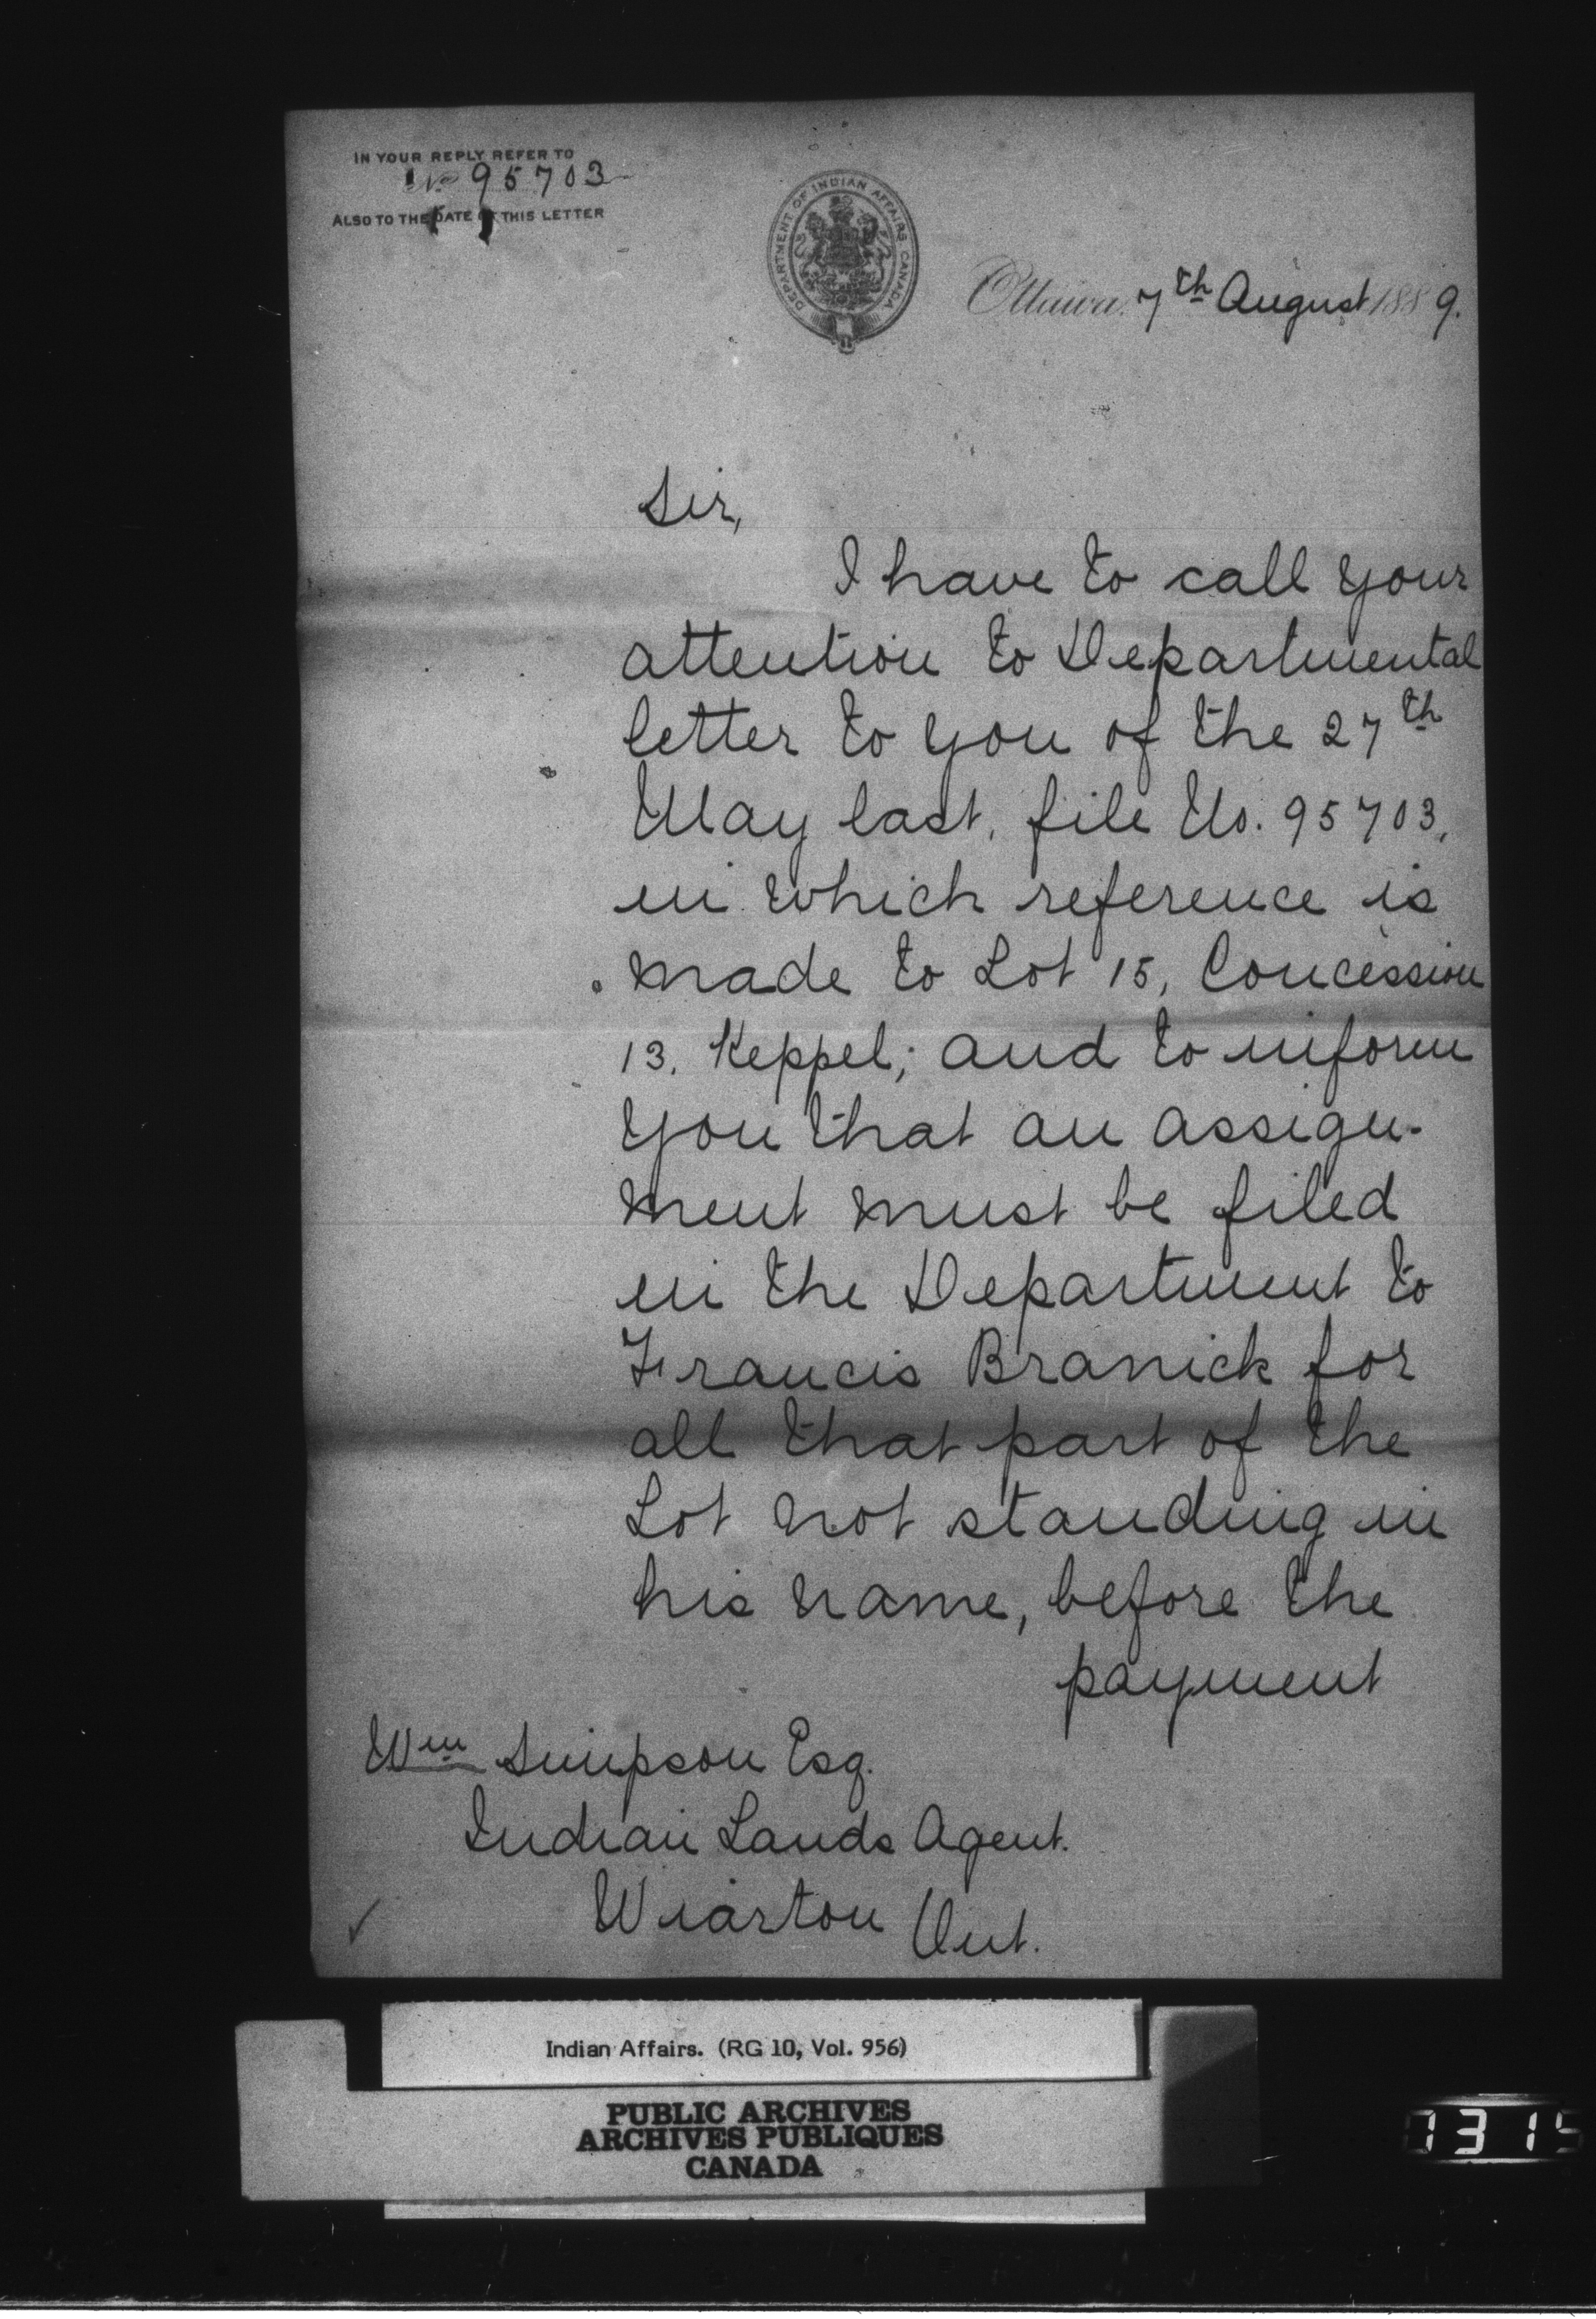 IN YOUR REPLY REFER TO
No 95703
ALSO TO THE DATE OF THIS LETTER
DEPARTMENT OF INDIAN AFFAIRS CANADA
Ottawa, 7th August 1889.
Sir,
I have to call your
attention to Departmental
letter to you of the 27th
May last, file No. 95703,
in which reference is
made to Lot 15, Concession
13, Keppel; and to inform
you that an assign-
ment must be filed
in the Department to
Francis Branick for
all that part of the
Lot not standing in
his name, before the
payment
Wm Simpson Esq.
Indian Lands Agent.
Wiarton Ont.
Indian Affairs. (RG 10, Vol. 956)
PUBLIC ARCHIVES
ARCHIVES PUBLIQUES
CANADA